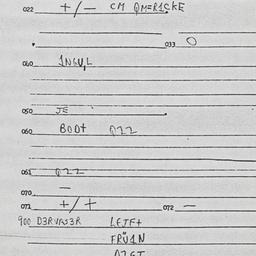 022 +/— CM QMERICKE
033 O
040 1NGU,L
050 JE
060 BODt Q22
061 Q22
070 —
071 +/+ 072 —
900 D3RVAS3R LEJF+
FRÜ1N